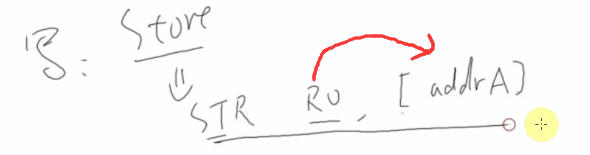 写: Store
⇓
STR R0, [addrA]